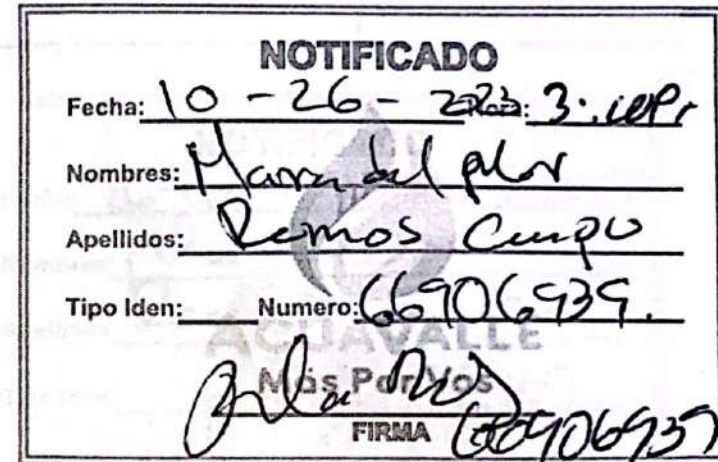 NOTIFICADO
Fecha: 10 - 26 - 2023 Hora: 3:
Nombres: Maria del pilar
Apellidos: Ramos
Tipo Iden: Numero: 66906939.
ACUAVALLE
Más Por Vos
FIRMA 66906939